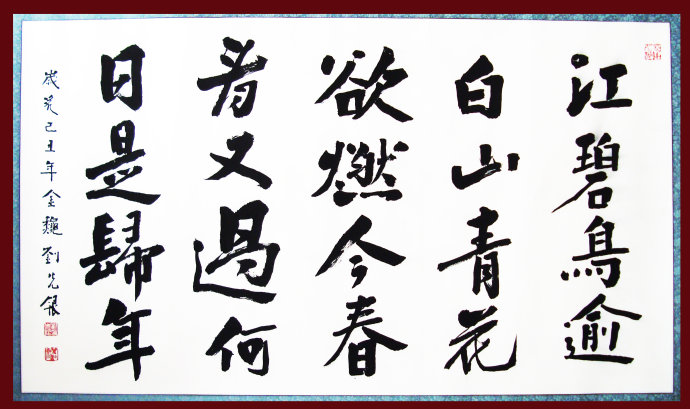 江碧鳥逾
白山青花
欲燃今春
看又過何
日是歸年
歲次己丑年金龝劉銀